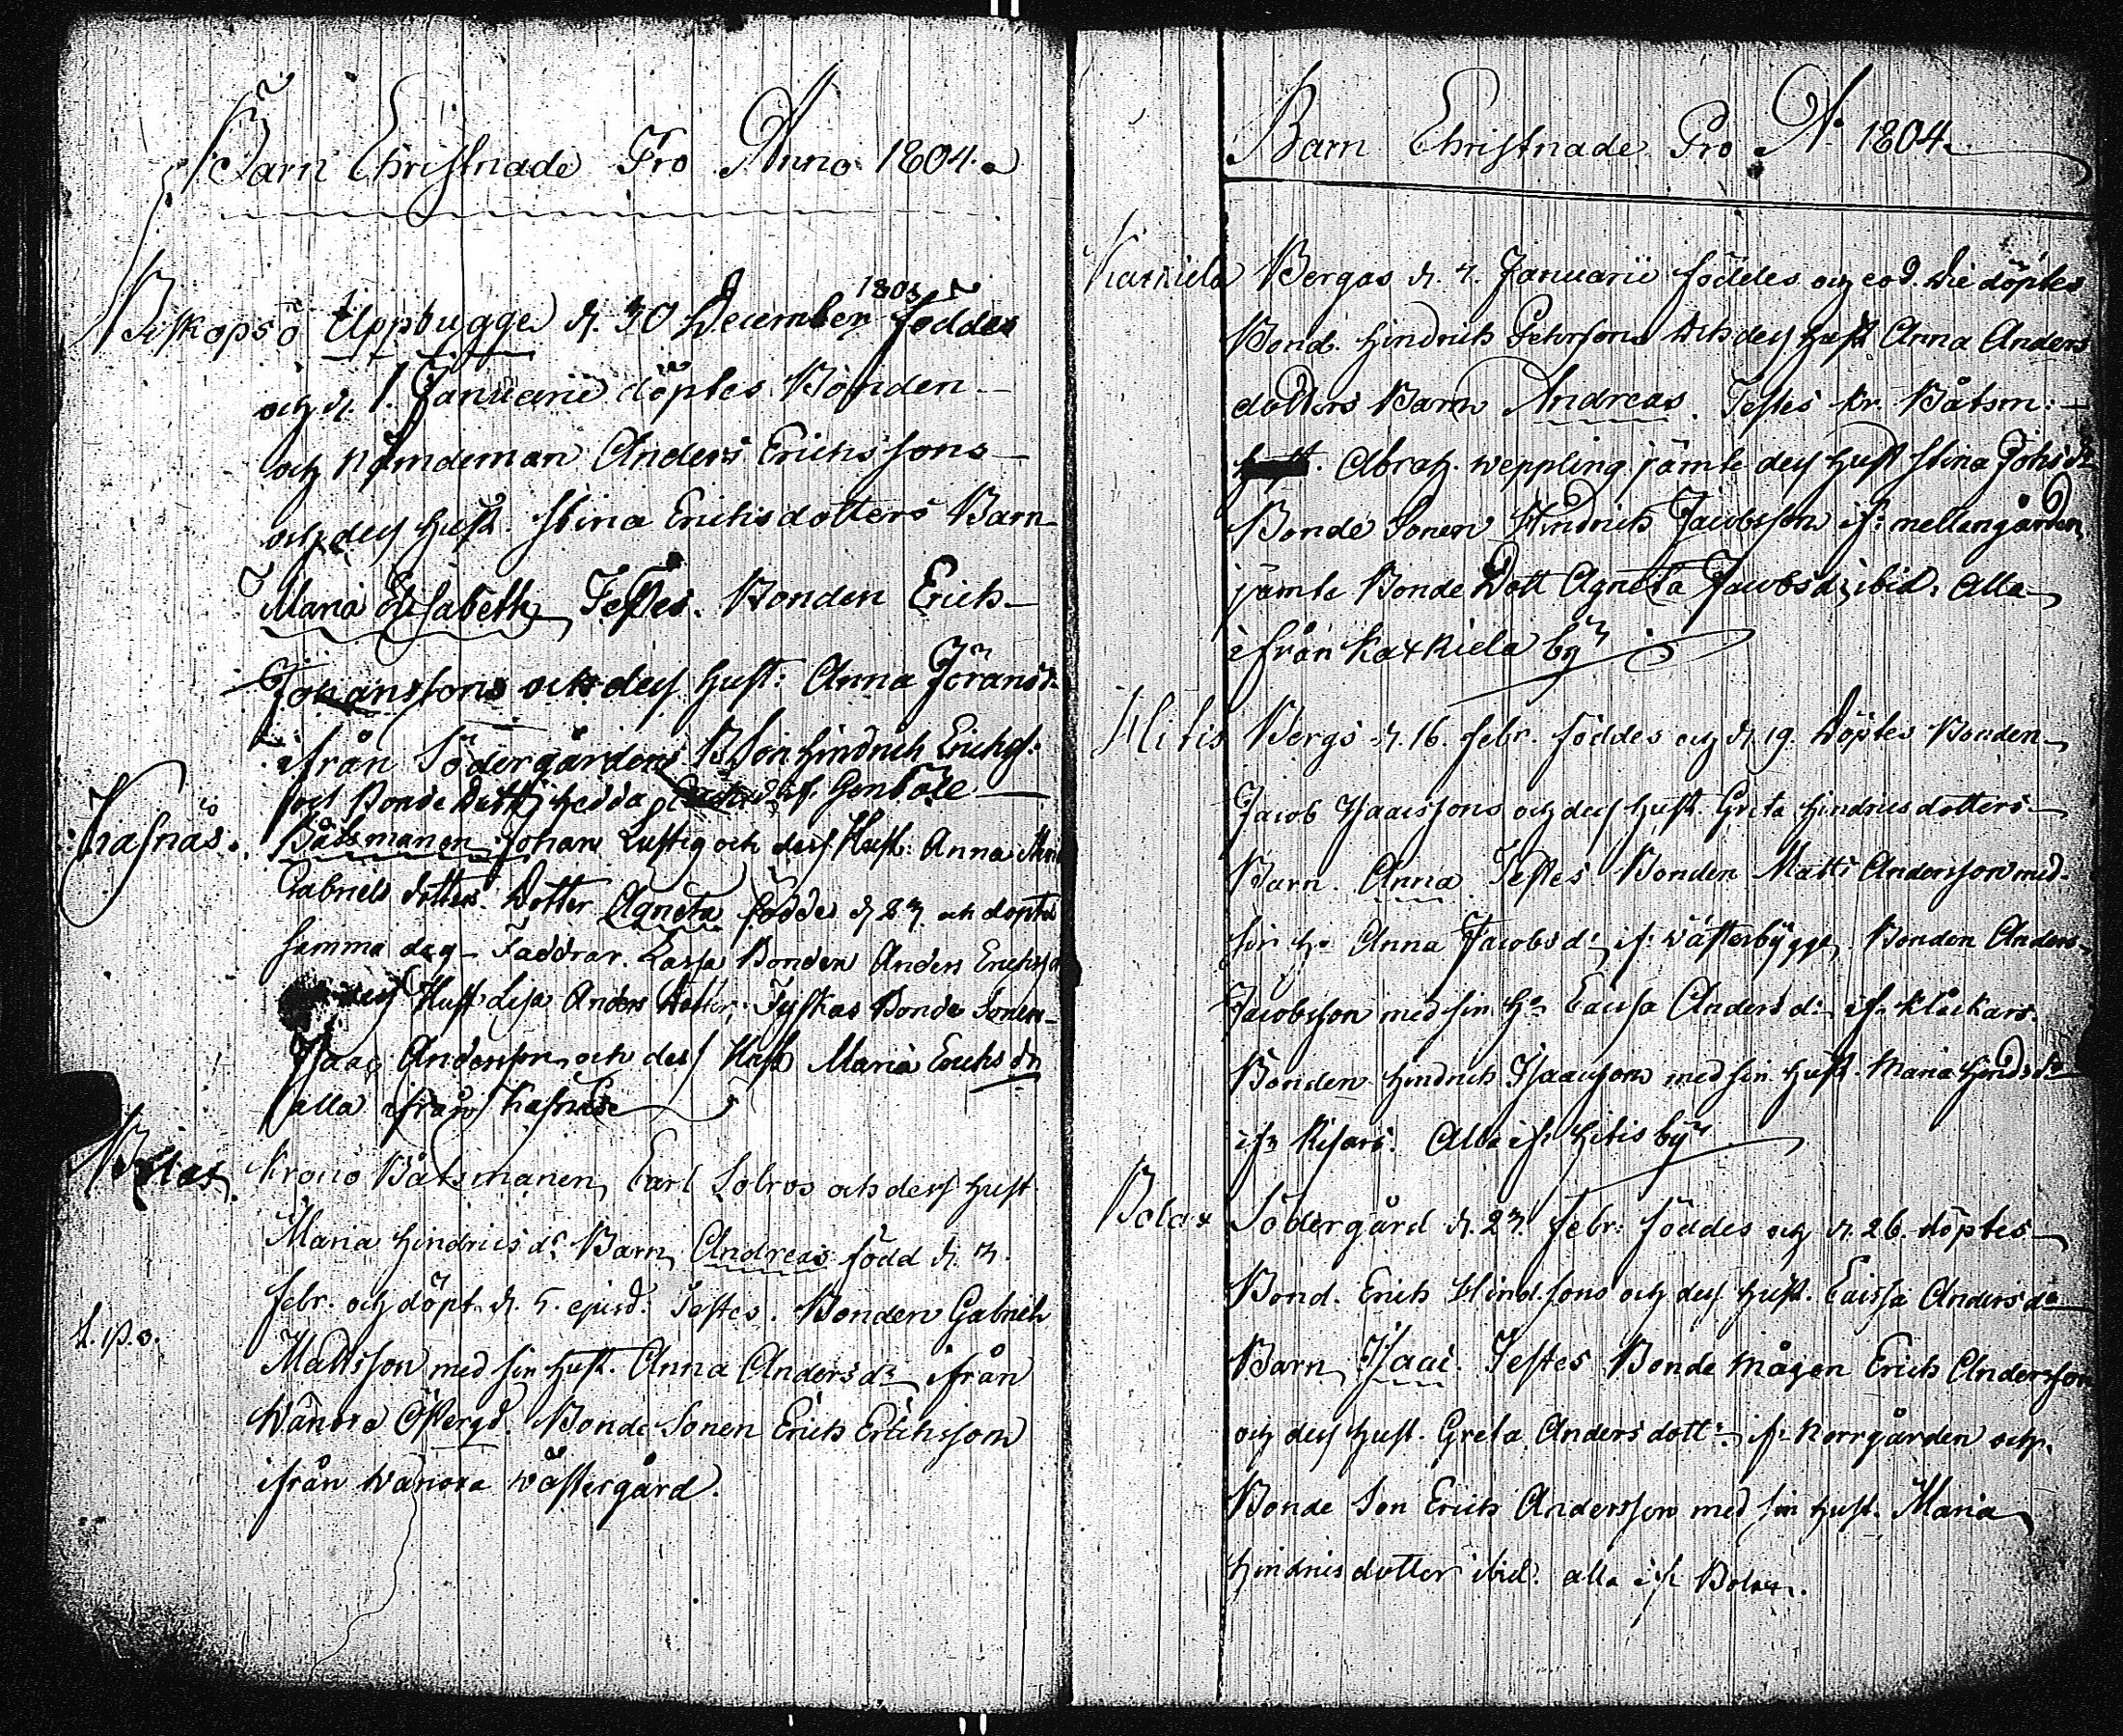 Barn Christnade Pro Anno 1804.
Biskopsö Uppbugge d. 30 December 1803 föddes
och d. 1. Januarii döptes Bonden
och Nämdeman Anders Erichssons
och dess Hust. Stina Erichsdotters Barn
Maria Elisabeth Testes. Bonden Erich
Johanssons och dess Hust: Anna Jöransd.
ifrån Södergården B Son Hindrich Erichss:
och Bonde Dott: Hedda if. Genböle
Kasnäs. Båtsmanen Johan Lustig och dess Hust: Anna
Gabriels dotters Dotter Agneta föddes d 27 och döptes
samma dag – Faddrar. Lassa Bonden Anders Erichsson
dess Hust Lisa Anders dotter, Tyskas Bonde Sonen
Isaac Andersson och dess Hust Maria Erichs dr
alla ifrån Kasnäs
Krono Båtsmanen Carl Solros och dess Hust
Maria Hindricsdr Barn Andreas född d. 3.
Febr. och döpt d. 5. ejusd. Testes. Bonden Gabriel
Mattsson med sin Hust. Anna Andersdr ifrån
Wänoxa Östergd. Bonde Sonen Erich Erichsson
ifrån Wänoxa Wästergård.
Barn Christnade Pro Ao 1804.
Kaxkiela Bergas d. 4. Januarii föddes och eod. die döptes
Bond. Hindrich Petersons och dess Hust Anna Anders
dotters Barn Andreas. Testes Kr. Båtsm:
Abrah. Weppling jämte dess Hust Stina Johsdr
Bonde Sonen Hindrich Jacobsson if: mellangården,
jämte Bonde Dott Agneta Jacobsdr ibid. Alla
ifrån Kaxkiela by
Hitis Bergs d. 16. Febr. föddes och d. 19. döptes Bonden
Jacob Isaacssons och dess Hust. Greta Hindricsdotters
Barn. Anna Testes Bonden Matts Andersson med
sin h. Anna Jacobsd: if: Wästerbygge, Bonden Anders
Jacobsson med sin h. Caisa Andersd: if. Klåckars.
Bonden Hindrich Isaacsson med sin Hust. Maria Hindsdr
ifr Kisars. Alla if: Hitis by
Bolax Södergård d. 23. Febr: föddes och d. 26. döptes
Bond. Erich Hind.sons och dess Hust. Caissa Andersdr
Barn Isaac. Testes Bonde mågen Erich Andersson
och dess Hust. Greta Andersdott: if: Norrgården och
Bonde Son Erich Andersson med sin Hust. Maria
Hindricsdotter ibid. alla if: Bolax.